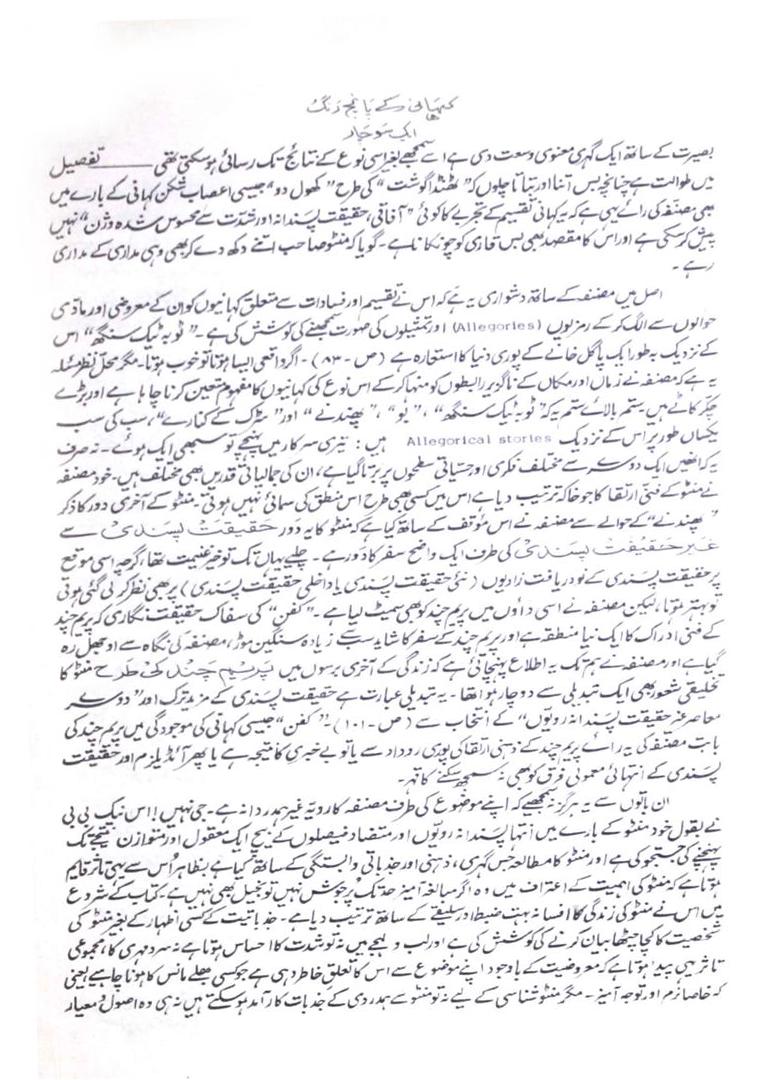 کہانی کے پانچ رنگ
ایک سو چار
بصیرت کے ساتھ ایک گہری معنوی وسعت دی ہے اسے سمجھے بغیر اسی نوع کے نتائج تک رسائی ہو سکتی تھی ــــــ تفصیل
میں طوالت ہے چنانچہ بس اتنا اور بتاتا چلوں کہ "ٹھنڈا گوشت" کی طرح "کھول دو" جیسی اعصاب شکن کہانی کے بارے میں
بھی مصنفہ کی رائے یہی ہے کہ یہ کہانی تقسیم کے تجربے کا کوئی "آفاقی، حقیقت پسندانہ اور شدت سے محسوس شدہ وژن" نہیں
پیش کر سکی ہے اور اس کا مقصد بھی بس قاری کو چونکانا ہے۔ گویا کہ منٹو صاحب اتنے دکھ دے کر بھی وہی مداری کے مداری
رہے۔
اصل میں مصنفہ کے ساتھ دشواری یہ ہے کہ اس نے تقسیم اور فسادات سے متعلق کہانیوں کو ان کے معروضی اور مادّی
حوالوں سے الگ کر کے رمزیوں (Allegories) اور تمثیلوں کی صورت سمجھنے کی کوشش کی ہے۔ "ٹوبہ ٹیک سنگھ" اس
کے نزدیک بہ طور ایک پاگل خانے کے پوری دنیا کا استعارہ ہے (ص - ۸۳)۔ اگر واقعی ایسا ہوتا تو خوب ہوتا۔ مگر محلِ نظر مسئلہ
یہ ہے کہ مصنفہ نے زماں اور مکاں کے ناگزیر رابطوں کو منہا کر کے اس نوع کی کہانیوں کا مفہوم متعین کرنا چاہا ہے اور بڑے
چکر کاٹے ہیں۔ ستم بالائے ستم یہ کہ "ٹوبہ ٹیک سنگھ"، "بُو"، "پھندنے" اور "سڑک کے کنارے"، سب کی سب
یکساں طور پر اس کے نزدیک Allegorical stories ہیں: تیری سرکار میں پہنچے تو سبھی ایک ہوئے۔ نہ صرف
یہ کہ انھیں ایک دوسرے سے مختلف فکری اور حسّیاتی سطحوں پر برتا گیا ہے، ان کی جمالیاتی قدریں بھی مختلف ہیں۔ خود مصنفہ
نے منٹو کے فنّی ارتقا کا جو خاکہ ترتیب دیا ہے اس میں کسی بھی طرح اس منطق کی سمائی نہیں ہوتی۔ منٹو کے آخری دور کا ذکر
"پھندنے" کے حوالے سے مصنفہ نے اس مؤقف کے ساتھ کیا ہے کہ منٹو کا یہ دَور حقیقت پسندی سے
غیر حقیقت پسندی کی طرف ایک واضح سفر کا دَور ہے۔ چلیے یہاں تک تو خیر غنیمت تھا، گرچہ اسی موقع
پر حقیقت پسندی کے نو دریافت زاویوں (نئی حقیقت پسندی یا داخلی حقیقت پسندی) پر بھی نظر کر لی گئی ہوتی
تو بہتر ہوتا، لیکن مصنفہ نے اسی داؤں میں پریم چند کو بھی سمیٹ لیا ہے۔ "کفن" کی سفاک حقیقت نگاری کہ پریم چند
کے فنّی ادراک کا ایک نیا منطقہ ہے اور پریم چند کے سفر کا شاید سب سے زیادہ سنگین موڑ، مصنفہ کی نگاہ سے اوجھل رہ
گیا ہے اور مصنفہ نے ہم تک یہ اطلاع پہنچائی ہے کہ زندگی کے آخری برسوں میں پریم چند کی طرح منٹو کا
تخلیقی شعور بھی ایک تبدیلی سے دوچار ہوا تھا۔ یہ تبدیلی عبارت ہے حقیقت پسندی کے مزید ترک اور "دوسرے
معاصر غیر حقیقت پسندانہ رویّوں" کے انتخاب سے (ص - ۱۰۱)۔ "کفن" جیسی کہانی کی موجودگی میں پریم چند کی
بابت مصنفہ کی یہ رائے پریم چند کے ذہنی ارتقا کی پوری روداد سے یا تو بے خبری کا نتیجہ ہے یا پھر آئڈیلزم اور حقیقت
پسندی کے انتہائی معمولی فرق کو بھی نہ سمجھ سکنے کا ثمر۔
ان باتوں سے یہ ہرگز نہ سمجھیے کہ اپنے موضوع کی طرف مصنفہ کا رویّہ غیر ہمدردانہ ہے۔ جی نہیں!! اس نیک بی بی
نے بقول خود منٹو کے بارے میں انتہا پسندانہ رویّوں اور متضاد فیصلوں کے بیچ ایک معقول اور متوازن نتیجے تک
پہنچنے کی جستجو کی ہے اور منٹو کا مطالعہ جس گہری، ذہنی اور جذباتی وابستگی کے ساتھ کیا ہے بظاہر اُس سے یہی تاثر قایم
ہوتا ہے کہ منٹو کی اہمیت کے اعتراف میں وہ اگر مبالغہ آمیز حد تک پُرجوش نہیں تو بخیل بھی نہیں ہے۔ کتاب کے شروع
میں اس نے منٹو کی زندگی کا افسانہ بہت ضبط اور سلیقے کے ساتھ ترتیب دیا ہے۔ جذباتیت کے کسی اظہار کے بغیر منٹو کی
شخصیت کا کچا چٹھا بیان کرنے کی کوشش کی ہے اور لب و لہجے میں نہ تو شدت کا احساس ہوتا ہے نہ سرد مہری کا، مجموعی
تاثر یہی پیدا ہوتا ہے کہ معروضیت کے باوجود اپنے موضوع سے اس کا تعلقِ خاطر وہی ہے جو کسی بھلے مانس کا ہونا چاہیے یعنی
کہ خاصا نرم اور توجہ آمیز۔ مگر منٹو شناسی کے لیے نہ تو منٹو سے ہمدردی کے جذبات کار آمد ہو سکتے ہیں نہ ہی وہ اصول و معیار